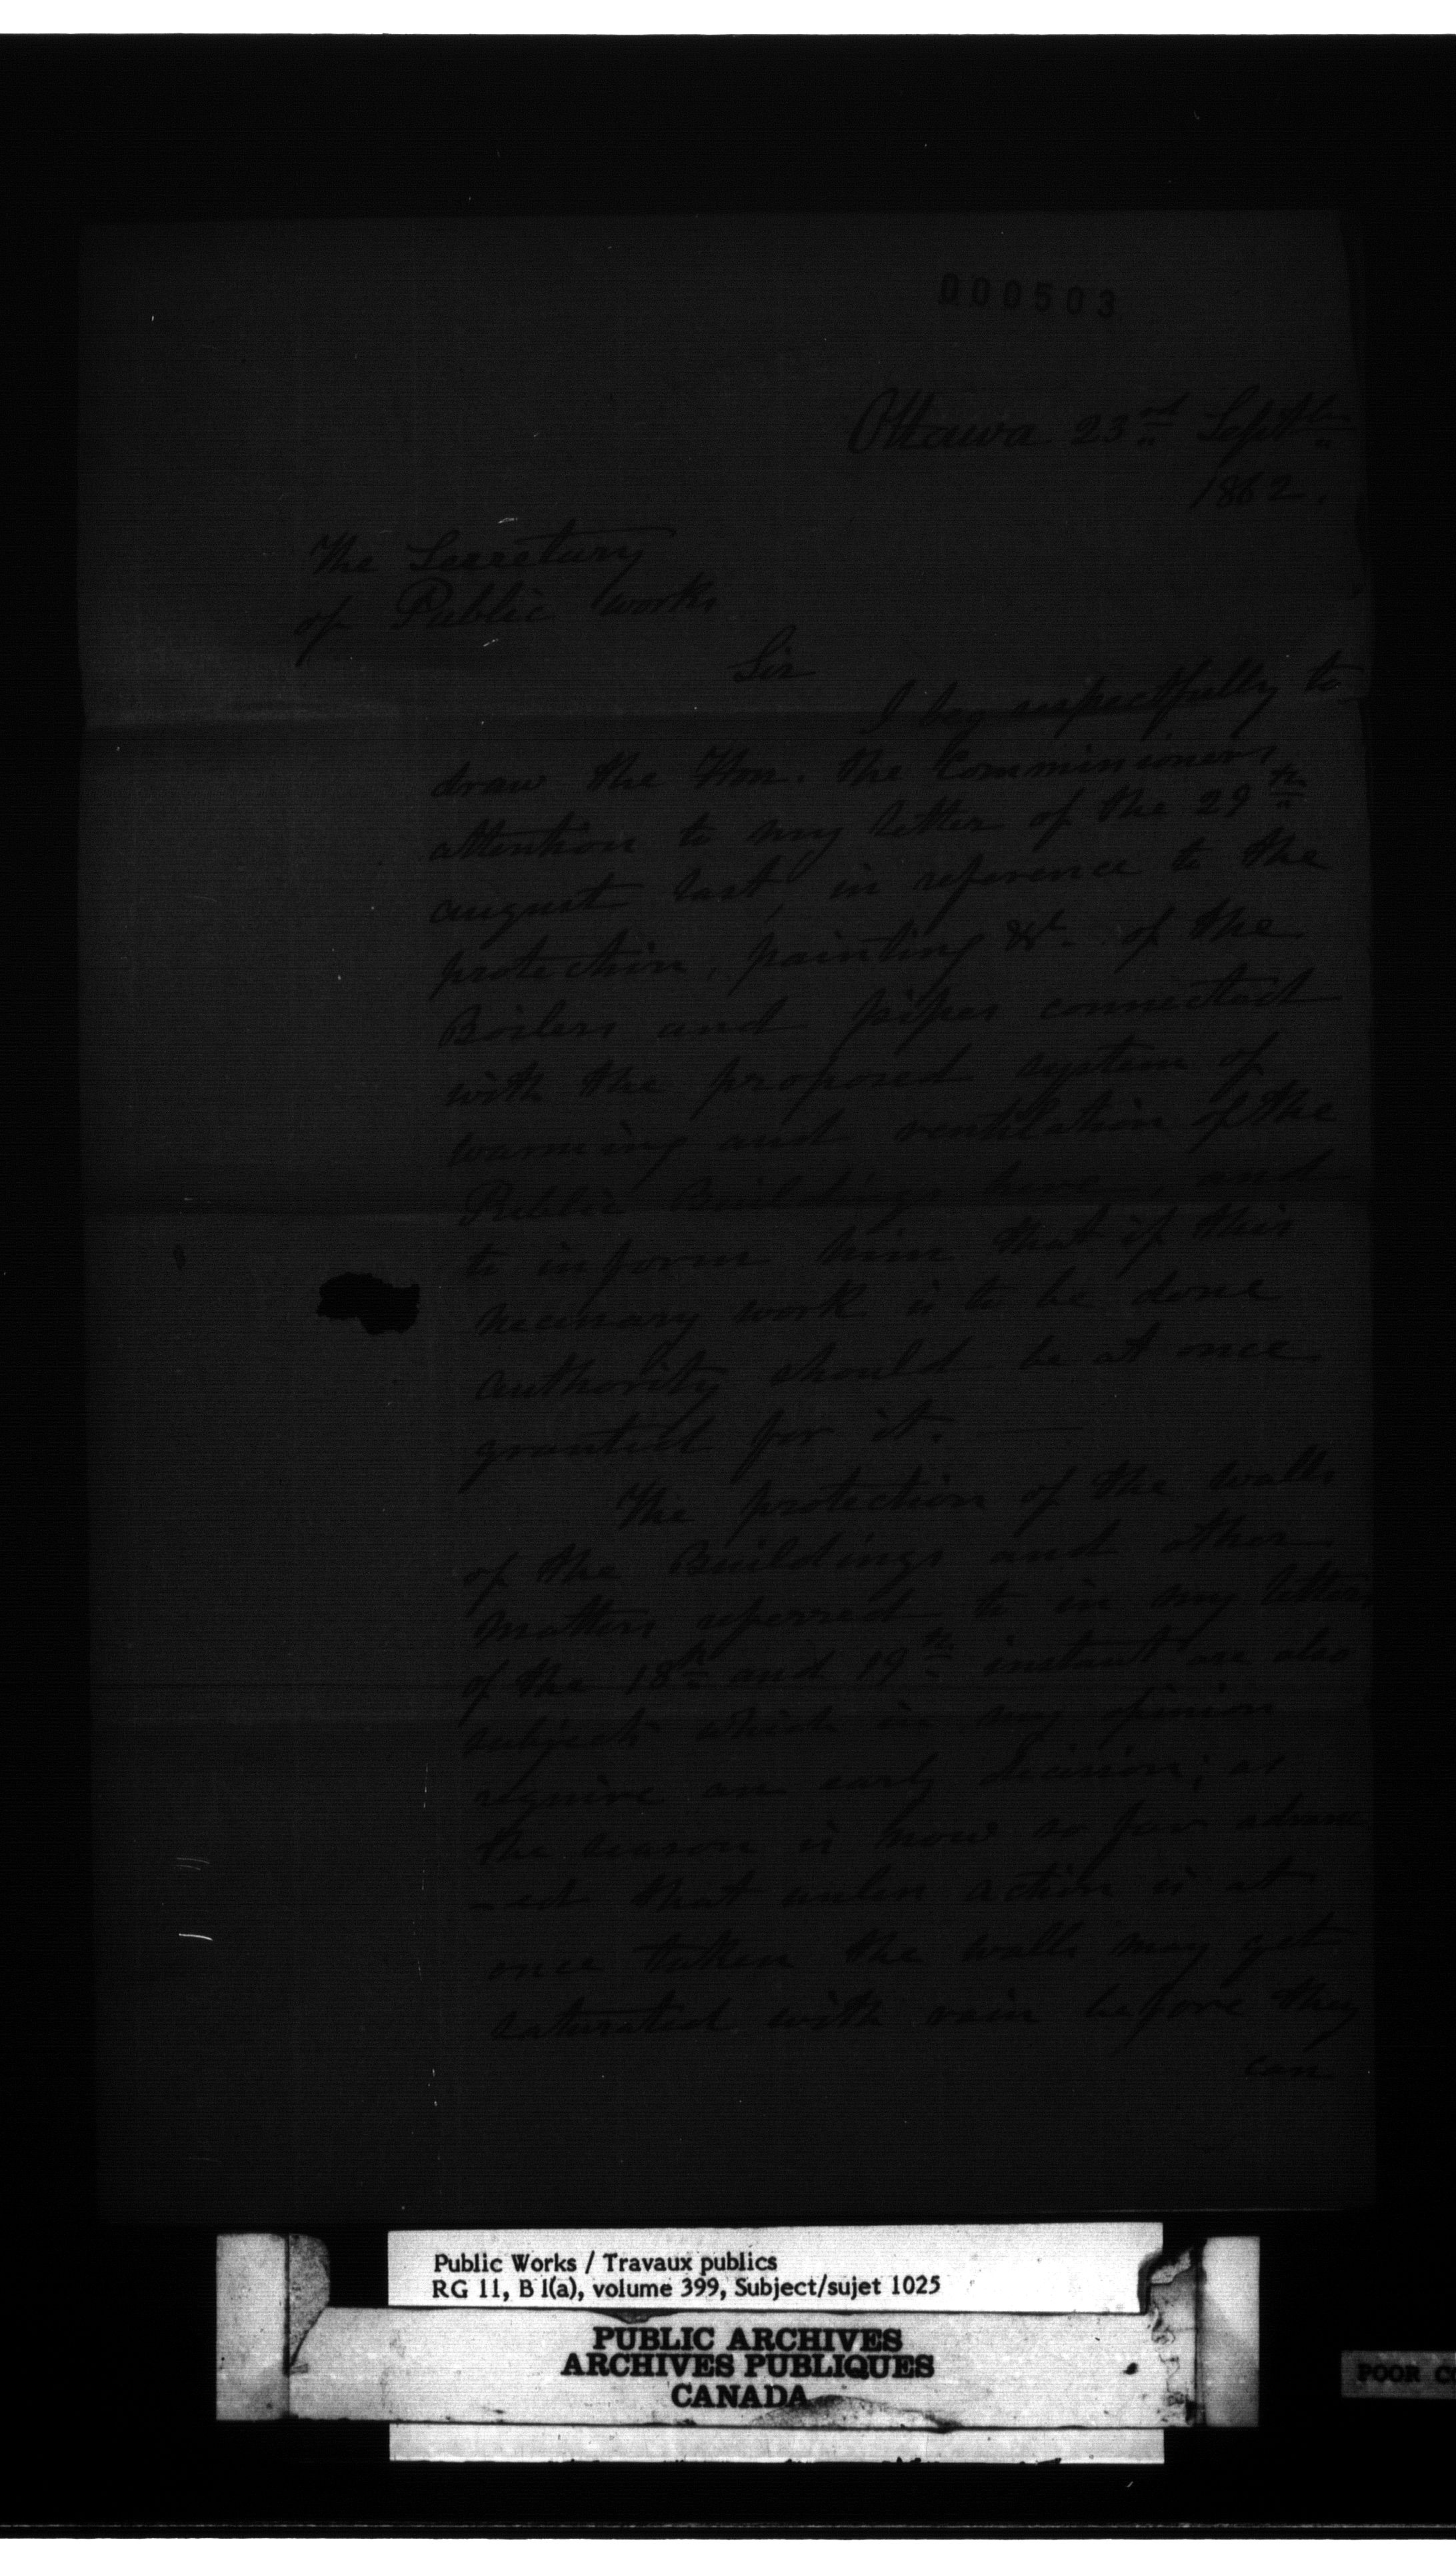 000503
Ottawa 23rd Septbr
1862.
The Secretary
of Public works
Sir
I beg respectfully to
draw the Hon. the Commissioners
attention to my letter of the 29th
august last, in reference to the
protection, painting &c. of the
Boilers and pipes connected
with the proposed system of
warming and ventilation of the
Public Buildings here, and
to inform him that if this
necessary work is to be done
authority should be at once
granted for it. —
The protection of the walls
of the Buildings and other
matters referred to in my letters
of the 18th and 19th instant are also
subjects which in my opinion
require an early decision; as
the season is now so far advanc
-ed that unless action is at
once taken the walls may get
saturated with rain before they
can
Public Works / Travaux publics
RG 11, B 1(a), volume 399, Subject/sujet 1025
PUBLIC ARCHIVES
ARCHIVES PUBLIQUES
CANADA
POOR C